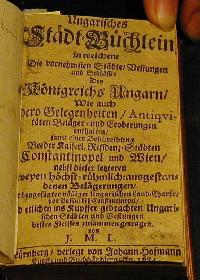 Ungarisches
Städt-Büchlein
in welchem
Die vornehmsten Städte / Vestungen
und Schlösser
Des
Königreichs Ungarn /
Wie auch
Dero Gelegenheiten / Antiqvi-
täten Beläger- und Eroberungen
enthalten /
samt einer Beschreibung
Beider Kaiserl. Residenz-Städten
Constantinopel und Wien /
nebst dieser letzteren
zweyen höchst-rühmlich ausgestan-
denen Belägerungen /
zur Behuf
und etlichen ins Kupfer gebrachten Ungari-
schen Städten und Vestungen
bestes Fleisses zusammen getragen /
von
J. M. L.
Nürnberg / verlegt von Johann Hofmann